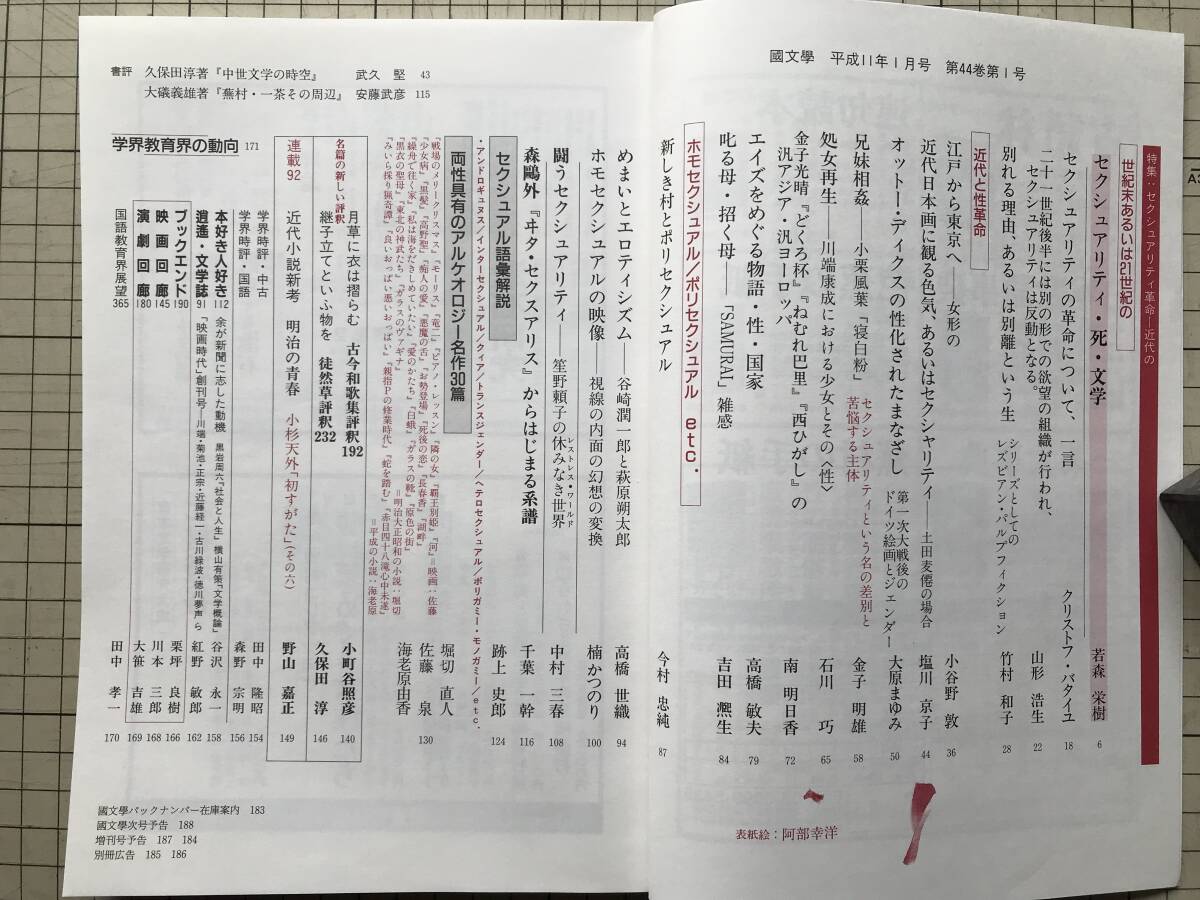 國文學 平成11年1月号 第44巻第1号
特集：セクシュアリティ革命―近代の
世紀末あるいは21世紀の
セクシュアリティ・死・文学 若森 栄樹 6
セクシュアリティの革命について、一言 クリストフ・バタイユ 18
二十一世紀後半には別の形での欲望の組織が行われ、
セクシュアリティは反動となる。 山形 浩生 22
別れる理由、あるいは別離という生 シリーズとしての
レズビアン・パルプフィクション 竹村 和子 28
近代と性革命
江戸から東京へ――女形の 小谷野 敦 36
近代日本画に観る色気、あるいはセクシャリティ――土田麦僊の場合 塩川 京子 44
オットー・ディクスの性化されたまなざし 第一次大戦後の
ドイツ絵画とジェンダー 大原まゆみ 50
兄妹相姦――小栗風葉「寝白粉」 セクシュアリティという名の差別と
苦悩する主体 金子 明雄 58
処女再生――川端康成における少女とその〈性〉 石川 巧 65
金子光晴『どくろ杯』『ねむれ巴里』『西ひがし』の
汎アジア・汎ヨーロッパ 南 明日香 72
エイズをめぐる物語・性・国家 高橋 敏夫 79
叱る母・招く母――「SAMURAI」雑感 吉田 凞生 84
ホモセクシュアル/ポリセクシュアル etc.
新しき村とポリセクシュアル 今村 忠純 87
めまいとエロティシズム――谷崎潤一郎と萩原朔太郎 高橋 世織 94
ホモセクシュアルの映像――視線の内面の幻想の変換 楠かつのり 100
闘うセクシュアリティ――笙野頼子の休みなき世界 レストレス・ワールド 中村 三春 108
森鷗外『ヰタ・セクスアリス』からはじまる系譜 千葉 一幹 116
セクシュアル語彙解説 跡上 史郎 124
・アンドロギュヌス/インターセクシュアル/クィア/トランスジェンダー/ヘテロセクシュアル/ポリガミー・モノガミー/etc.
両性具有のアルケオロジー名作30篇 堀切 直人
佐藤 泉
海老原由香 130
『戦場のメリークリスマス』『モーリス』『竜二』『ピアノ・レッスン』『隣の女』『覇王別姫』『河』＝映画：佐藤
『少女病』『黒髪』『高野聖』『痴人の愛』『悪魔の舌』『お勢登場』『死後の恋』『長春香』『湖畔』
『繰舟で往く家』『私は海をだきしめていたい』『愛のかたち』『白蛾』『ガラスの靴』『原色の街』
『黒衣の聖母』『東北の神武たち』『ガラスのヴァギナ』＝明治大正昭和の小説：堀切
『みいら採り猟奇譚』『良いおっぱい悪いおっぱい』『親指Pの修業時代』『蛇を踏む』『赤目四十八滝心中未遂』
＝平成の小説：海老原
名篇の新しい評釈
月草に衣は摺らむ 古今和歌集評釈192 小町谷照彦 140
継子立てといふ物を 徒然草評釈232 久保田 淳 146
連載92 近代小説新考 明治の青春 小杉天外「初すがた」（その六） 野山 嘉正 149
学界時評・中古 田中 隆昭 154
学界時評・国語 森野 宗明 156
本好き人好き112 余が新聞に志した動機 黒岩周六『社会と人生』 横山有策『文学概論』 谷沢 永一 158
逍遙・文学誌91 「映画時代」創刊号―川端・菊池・正宗・近藤経一・古川緑波・徳川夢声ら 紅野 敏郎 162
ブックエンド190 栗坪 良樹 166
映画回廊145 川本 三郎 168
演劇回廊180 大笹 吉雄 169
国語教育界展望365 田中 孝一 170
学界教育界の動向 171
書評 久保田淳著『中世文学の時空』 武久 堅 43
大磯義雄著『蕪村・一茶その周辺』 安藤武彦 115
國文學バックナンバー在庫案内 183
國文學次号予告 188
増刊号予告 187 184
別冊広告 185 186
表紙絵：阿部幸洋